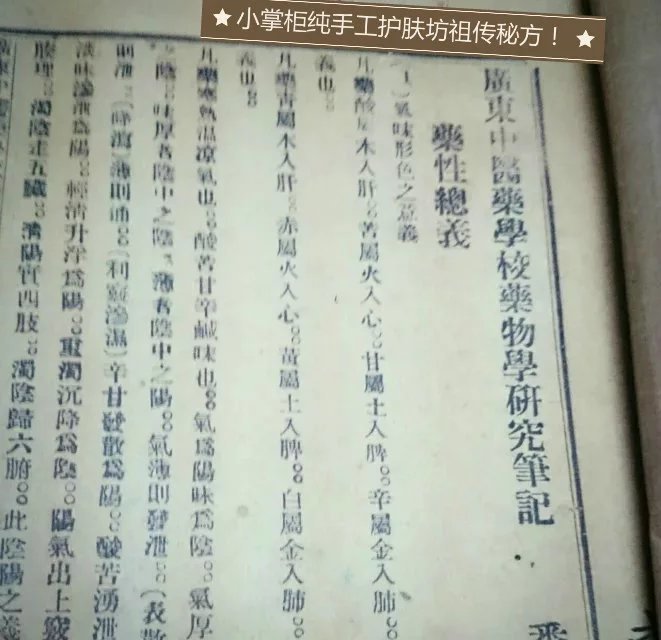 ★ 小掌柜纯手工护肤坊祖传秘方！ ★
廣東中醫藥學校藥物學研究筆記
藥性總義
氣味形色之意義
凡藥酸屬木入肝。苦屬火入心。甘屬土入脾。辛屬金入肺。
義也。
凡藥青屬木入肝。赤屬火入心。黃屬土入脾。白屬金入肺。
義也。
凡藥寒熱温凉氣也。酸苦甘辛鹹味也。氣爲陽味爲陰。氣厚
陰。味厚者陰中之陰。薄者陰中之陽。氣薄則發泄。（表散
則泄。（降瀉）薄則通。（利竅滲濕）辛甘發散爲陽。酸苦湧泄
淡味滲泄爲陽。輕清升浮爲陽。重濁沉降爲陰。陽氣出上竅
腠理。濁陰走五臟。清陽實四肢。濁陰歸六腑。此陰陽之義